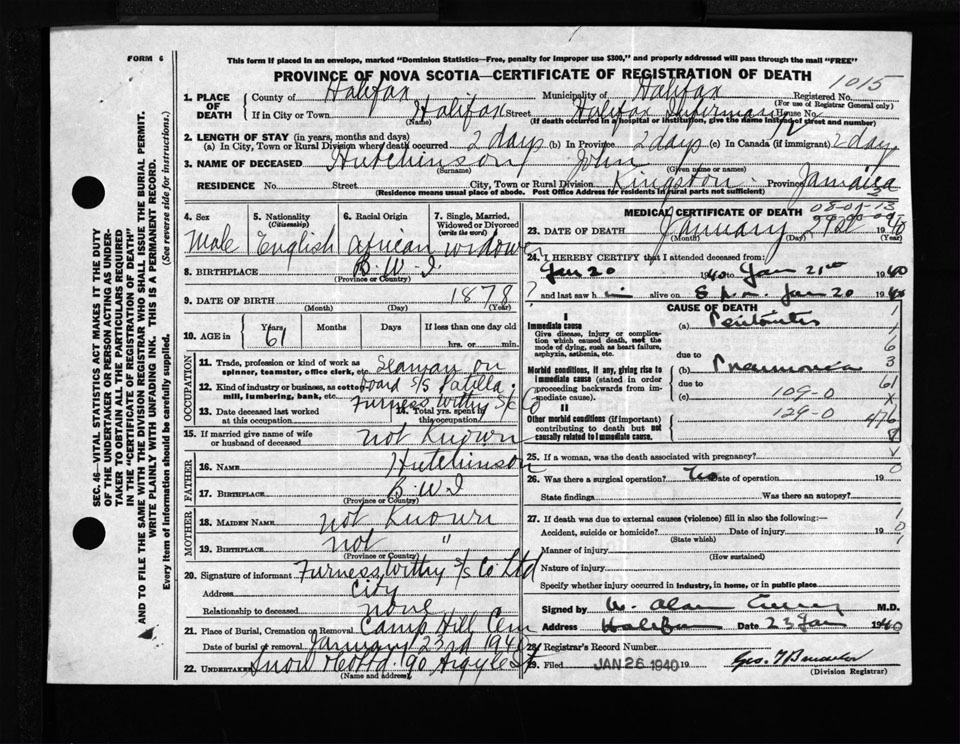 FORM 6
This form if placed in an envelope, marked "Dominion Statistics—Free, penalty for improper use $300," and properly addressed will pass through the mail "FREE"
PROVINCE OF NOVA SCOTIA—CERTIFICATE OF REGISTRATION OF DEATH
1015
1. PLACE OF DEATH County of Halifax Municipality of Halifax Registered No.
(For use of Registrar General only)
If in City or Town Halifax Street Halifax Infirmary House No.
(Name) (If death occurred in a hospital or institution, give the name instead of street and number)
2. LENGTH OF STAY (in years, months and days)
(a) In City, Town or Rural Division where death occurred 2 days (b) In Province 2 days (c) In Canada (if immigrant) 2 days
3. NAME OF DECEASED Hutchinson John
(Surname) (Given name or names)
RESIDENCE No. Street City, Town or Rural Division Kingston Province Jamaica
(Residence means usual place of abode. Post Office Address for residents in rural parts not sufficient)
4. Sex 5. Nationality (Citizenship) 6. Racial Origin 7. Single, Married, Widowed or Divorced (write the word)
Male English African widower
8. BIRTHPLACE B.W.I.
(Province or Country)
9. DATE OF BIRTH 1878
(Month) (Day) (Year)
10. AGE in Years Months Days If less than one day old
61 hrs. or min.
OCCUPATION
11. Trade, profession or kind of work as spinner, teamster, office clerk, etc. Seaman on
12. Kind of industry or business, as cotton mill, lumbering, bank, etc. board s/s Patella
Furness Withy S/S Co
13. Date deceased last worked at this occupation 14. Total yrs. spent in this occupation
15. If married give name of wife or husband of deceased not Known
FATHER
16. NAME Hutchinson
17. BIRTHPLACE B.W.I
(Province or Country)
MOTHER
18. MAIDEN NAME not Known
19. BIRTHPLACE not "
(Province or Country)
20. Signature of informant Furness Withy S/S Co Ltd
Address City
Relationship to deceased none
21. Place of Burial, Cremation or Removal Camp Hill Cem
Date of burial or removal January 23rd 1940
22. UNDERTAKER Snow & Co Ltd. 90 Argyle St
(Name and address)
MEDICAL CERTIFICATE OF DEATH
23. DATE OF DEATH January 21st 1940
(Month) (Day) (Year)
24. I HEREBY CERTIFY that I attended deceased from:
Jan 20 1940 to Jan 21st 1940
and last saw him alive on 8 p.m. Jan 20 1940
CAUSE OF DEATH
I
Immediate cause (a) Peritonitis
Give disease, injury or complication which caused death, not the mode of dying, such as heart failure, asphyxia, asthenia, etc.
due to
Morbid conditions, if any, giving rise to immediate cause (stated in order proceeding backwards from immediate cause). (b) Pneumonia
due to
(c) 109-0
II
129-0
Other morbid conditions (if important) contributing to death but not causally related to immediate cause.
25. If a woman, was the death associated with pregnancy?
26. Was there a surgical operation? No Date of operation 19
State findings Was there an autopsy?
27. If death was due to external causes (violence) fill in also the following:—
Accident, suicide or homicide? Date of injury 19
(State which)
Manner of injury
(How sustained)
Nature of injury
Specify whether injury occurred in industry, in home, or in public place
Signed by M.D.
Address Halifax Date 23 Jan 1940
28. Registrar's Record Number
29. Filed JAN 26 1940 19
(Division Registrar)
SEC. 46—VITAL STATISTICS ACT MAKES IT THE DUTY
OF THE UNDERTAKER OR PERSON ACTING AS UNDER-
TAKER TO OBTAIN ALL THE PARTICULARS REQUIRED
IN THE "CERTIFICATE OF REGISTRATION OF DEATH"
AND TO FILE THE SAME WITH THE DIVISION REGISTRAR WHO SHALL ISSUE THE BURIAL PERMIT.
WRITE PLAINLY WITH UNFADING INK. THIS IS A PERMANENT RECORD.
Every item of information should be carefully supplied. (See reverse side for instructions.)